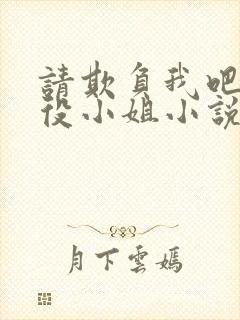 請欺負我吧
役小姐小說
月下雲嫣